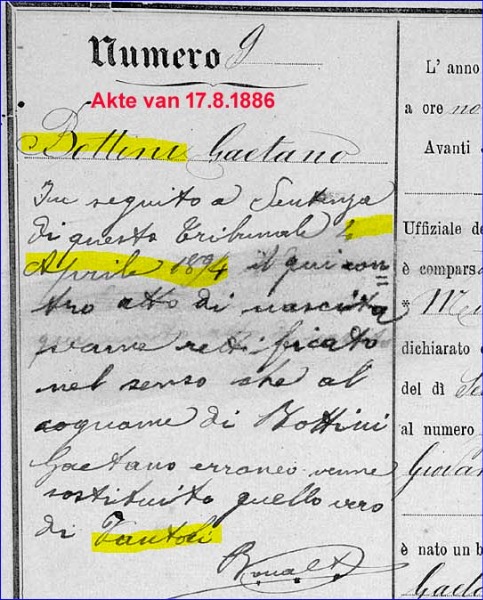 Numero 9
Akte van 17.8.1886
Bottini Gaetano
In seguito a Sentenza
di questo Tribunale 4
Aprile 1894 il qui con=
tro atto di nascita
venne rettificato
nel senso che al
cognome di Bottini
Gaetano erroneo venne
sostituito quello vero
di Fantoli
L' anno
a ore no
Avanti
Uffiziale de
è compars
*
dichiarato
del dì Se
al numero
Giovan
è nato un b
Gaeta